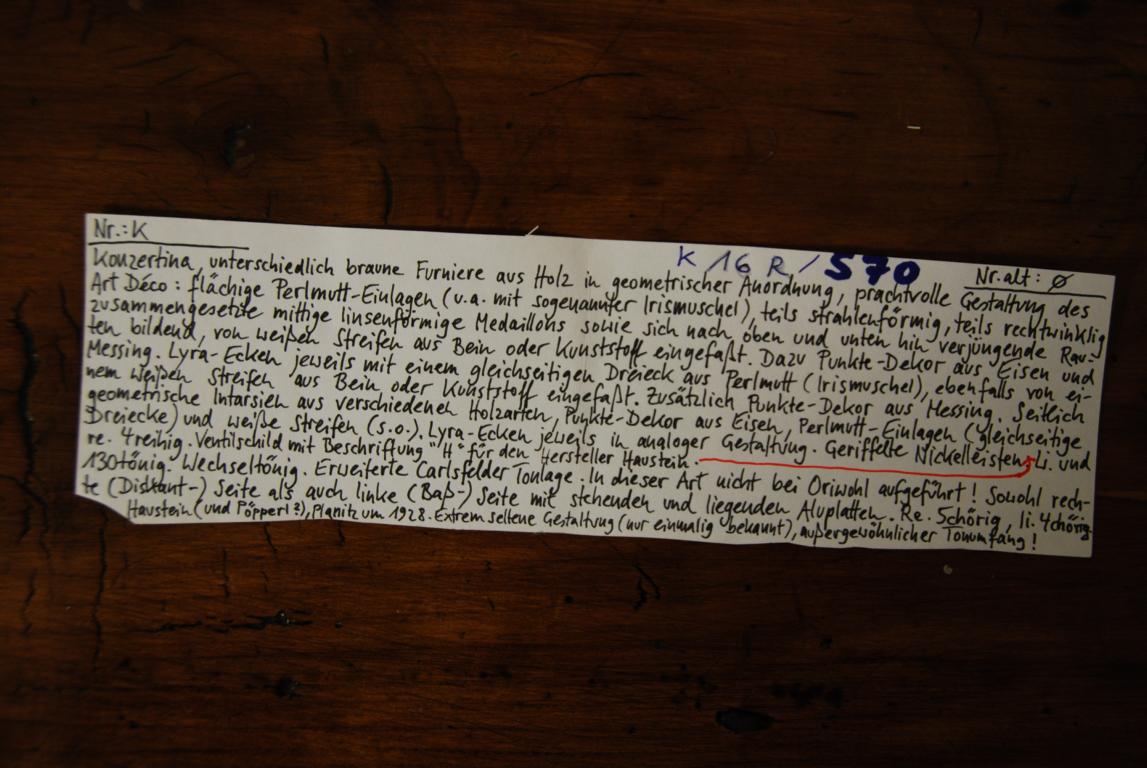 Nr.: K
K 16 R / 570
Nr. alt: ø
Konzertina, unterschiedlich braune Furniere aus Holz in geometrischer Anordnung, prachtvolle Gestaltung des
Art Déco: flächige Perlmutt-Einlagen (u.a. mit sogenannter Irismuschel), teils strahlenförmig, teils rechtwinklig
zusammengesetzte mittige linsenförmige Medaillons sowie sich nach oben und unten hin verjüngende Rau-
ten bildend, von weißen Streifen aus Bein oder Kunststoff eingefaßt. Dazu Punkte-Dekor aus Eisen und
Messing. Lyra-Ecken jeweils mit einem gleichseitigen Dreieck aus Perlmutt (Irismuschel), ebenfalls von ei-
nem weißen Streifen aus Bein oder Kunststoff eingefaßt. Zusätzlich Punkte-Dekor aus Messing. Seitlich
geometrische Intarsien aus verschiedenen Holzarten, Punkte-Dekor aus Eisen, Perlmutt-Einlagen (gleichseitige
Dreiecke) und weiße Streifen (s.o.). Lyra-Ecken jeweils in analoger Gestaltung. Geriffelte Nickelleisten, Li. und
re. 4reihig. Ventilschild mit Beschriftung "H" für den Hersteller Haustein.
130tönig. Wechseltönig. Erweiterte Carlsfelder Tonlage. In dieser Art nicht bei Oriwohl aufgeführt! Sowohl rech-
te (Diskant-) Seite als auch linke (Baß-) Seite mit stehenden und liegenden Aluplatten. Re. 5chörig, li. 4chörig.
Haustein (und Pöpperl?), Planitz um 1928. Extrem seltene Gestaltung (nur einmalig bekannt), außergewöhnlicher Tonumfang!